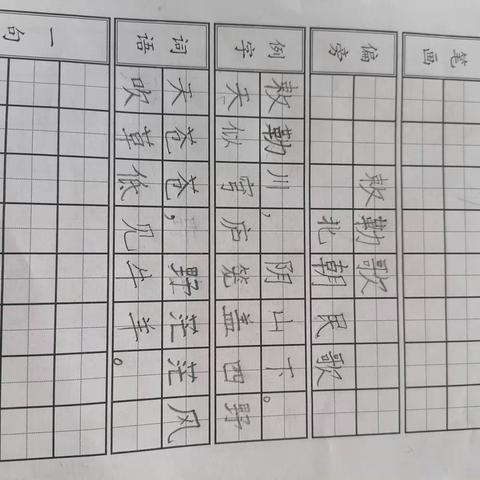 笔画
偏旁
敕勒歌
北朝民歌
例字
敕勒川，阴山下。
天似穹庐笼盖四野
词语
天苍苍，野茫茫风
吹草低见牛羊。
一句